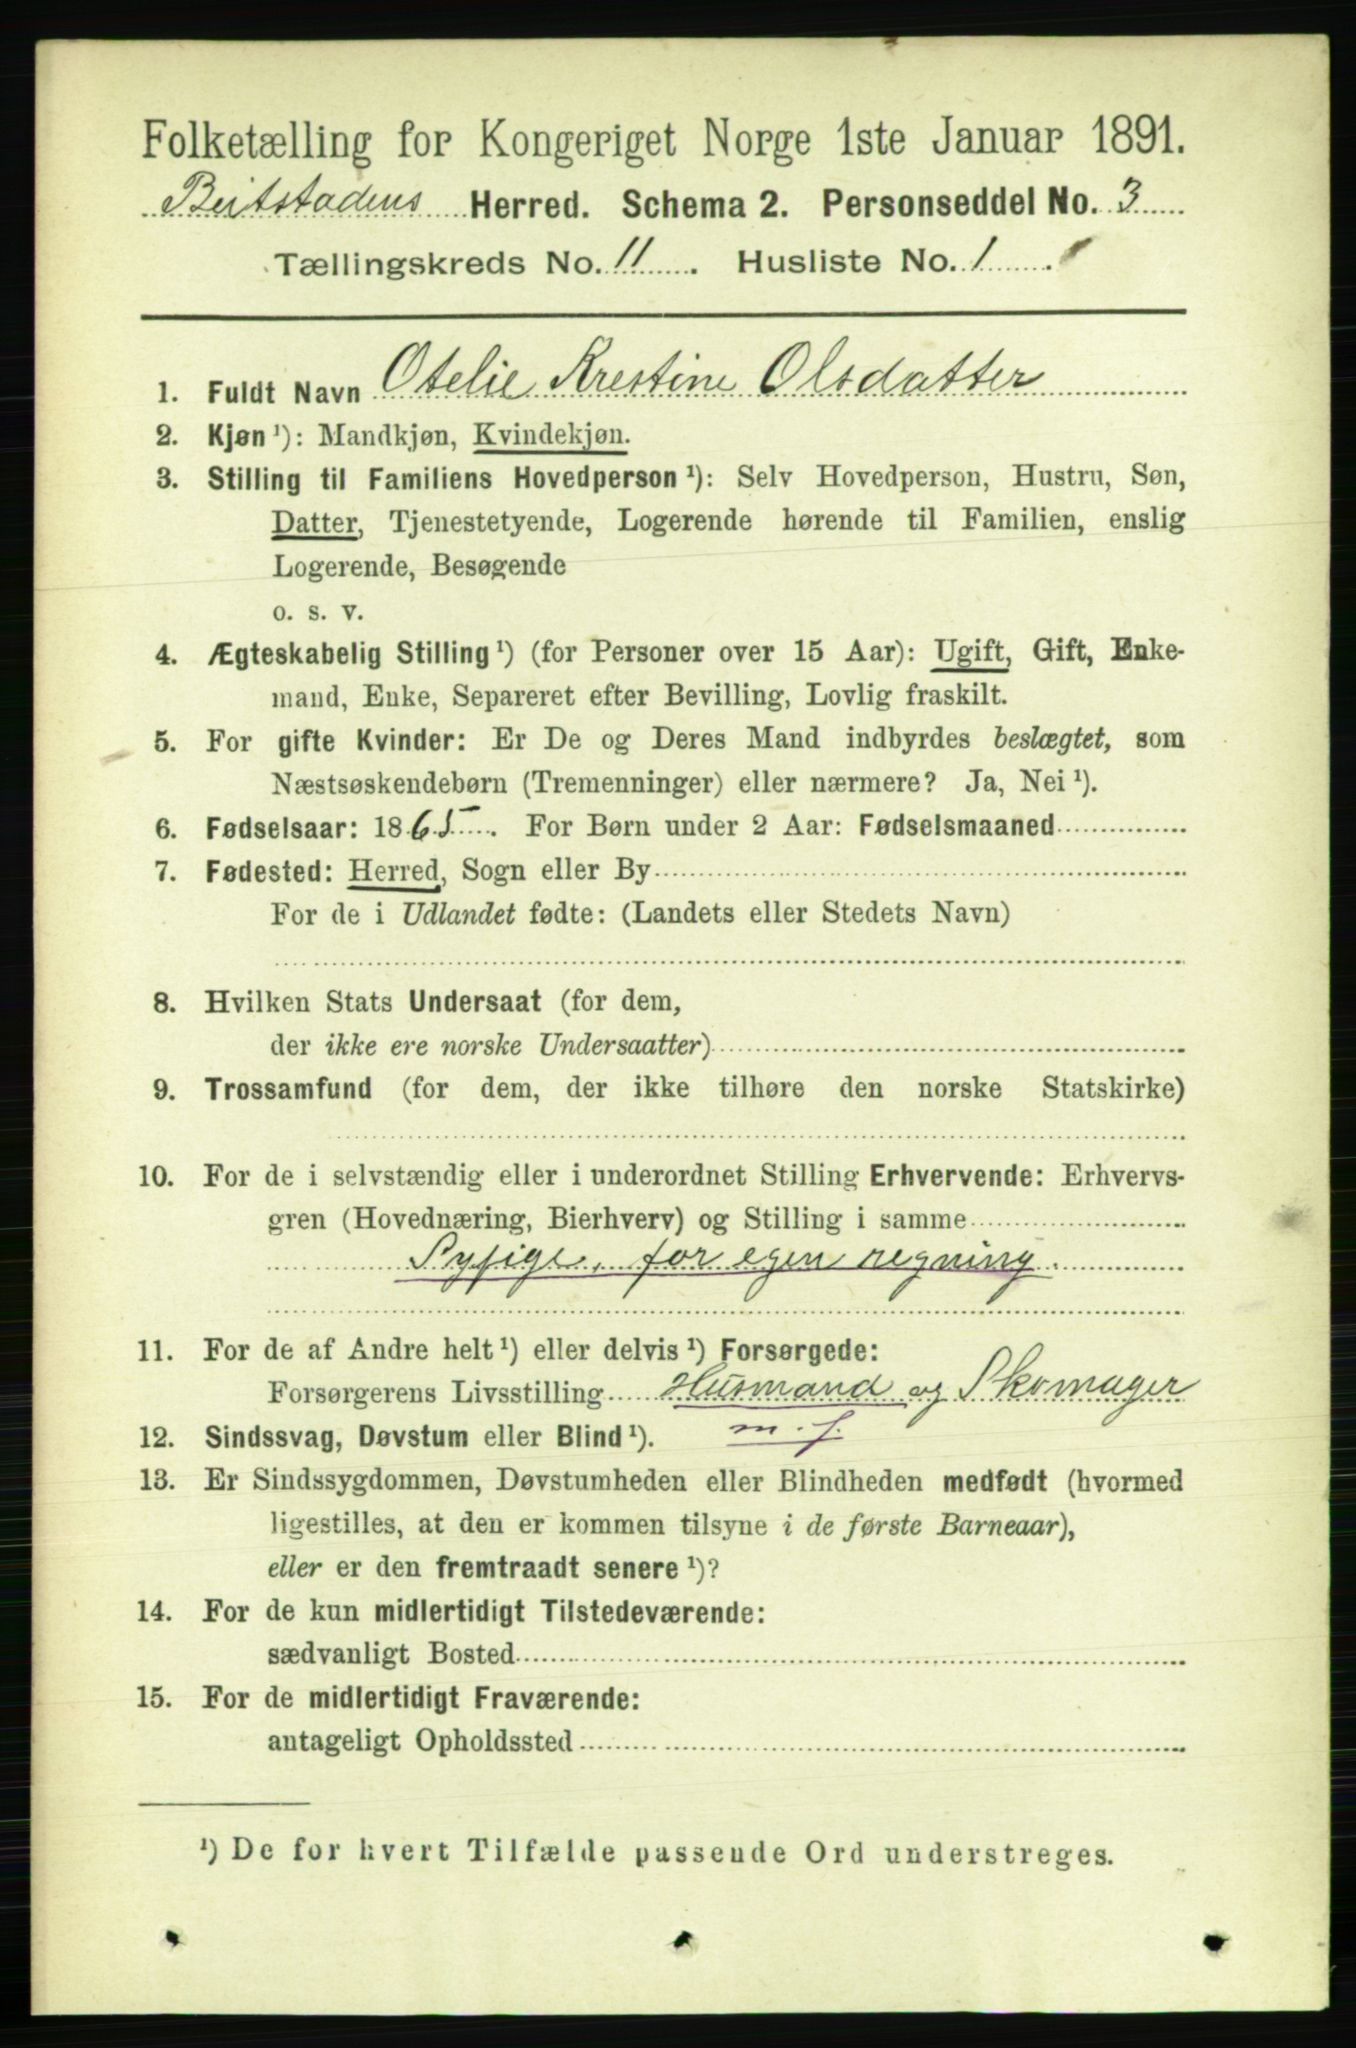 Folketælling for Kongeriget Norge 1ste Januar 1891.
Beitstadens Herred. Schema 2. Personseddel No. 3
Tællingskreds No. 11. Husliste No. 1.
1. Fuldt Navn Otelie Krestine Olsdatter
2. Kjøn ¹): Mandkjøn, Kvindekjøn.
3. Stilling til Familiens Hovedperson ¹): Selv Hovedperson, Hustru, Søn,
Datter, Tjenestetyende, Logerende hørende til Familien, enslig
Logerende, Besøgende
o. s. v.
4. Ægteskabelig Stilling ¹) (for Personer over 15 Aar): Ugift, Gift, Enke-
mand, Enke, Separeret efter Bevilling, Lovlig fraskilt.
5. For gifte Kvinder: Er De og Deres Mand indbyrdes beslægtet, som
Næstsøskendebørn (Tremenninger) eller nærmere? Ja, Nei ¹).
6. Fødselsaar: 1865. For Børn under 2 Aar: Fødselsmaaned
7. Fødested: Herred, Sogn eller By
For de i Udlandet fødte: (Landets eller Stedets Navn)
8. Hvilken Stats Undersaat (for dem,
der ikke ere norske Undersaatter)
9. Trossamfund (for dem, der ikke tilhøre den norske Statskirke)
10. For de i selvstændig eller i underordnet Stilling Erhvervende: Erhvervs-
gren (Hovednæring, Bierhverv) og Stilling i samme
Sypige, for egen regning.
11. For de af Andre helt ¹) eller delvis ¹) Forsørgede:
Forsørgerens Livsstilling Husmand og Skomager
m. f.
12. Sindssvag, Døvstum eller Blind ¹).
13. Er Sindssygdommen, Døvstumheden eller Blindheden medfødt (hvormed
ligestilles, at den er kommen tilsyne i de første Barneaar),
eller er den fremtraadt senere ¹)?
14. For de kun midlertidigt Tilstedeværende:
sædvanligt Bosted
15. For de midlertidigt Fraværende:
antageligt Opholdssted
¹) De for hvert Tilfælde passende Ord understreges.